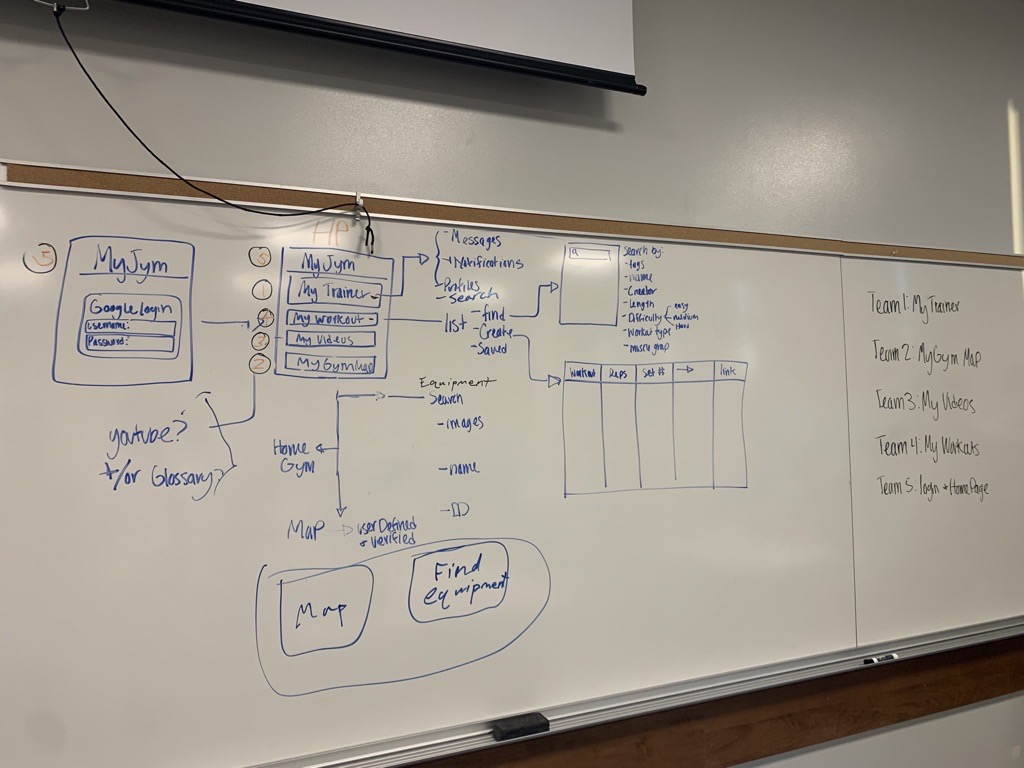 5
MyJym
Google login
username:
Password:
youtube?
+/or Glossary?
HP
5
MyJym
1
My Trainer
4
My workout
3
My Videos
2
My GymMap
- Messages
- Notifications
- Profiles
- Search
list
- find
- Create
- Saved
Search by:
- tags
- name
- Creator
- Length
- Difficulty
easy
medium
Hard
- Workout type
- muscle group
Workout
Reps
Set #
→
link
Equipment
Search
- images
- name
- ID
Home
Gym
Map
→ user Defined
+ verified
Map
Find
equipment
Team 1: My Trainer
Team 2: MyGym Map
Team 3: My Videos
Team 4: My Workouts
Team 5: login + HomePage